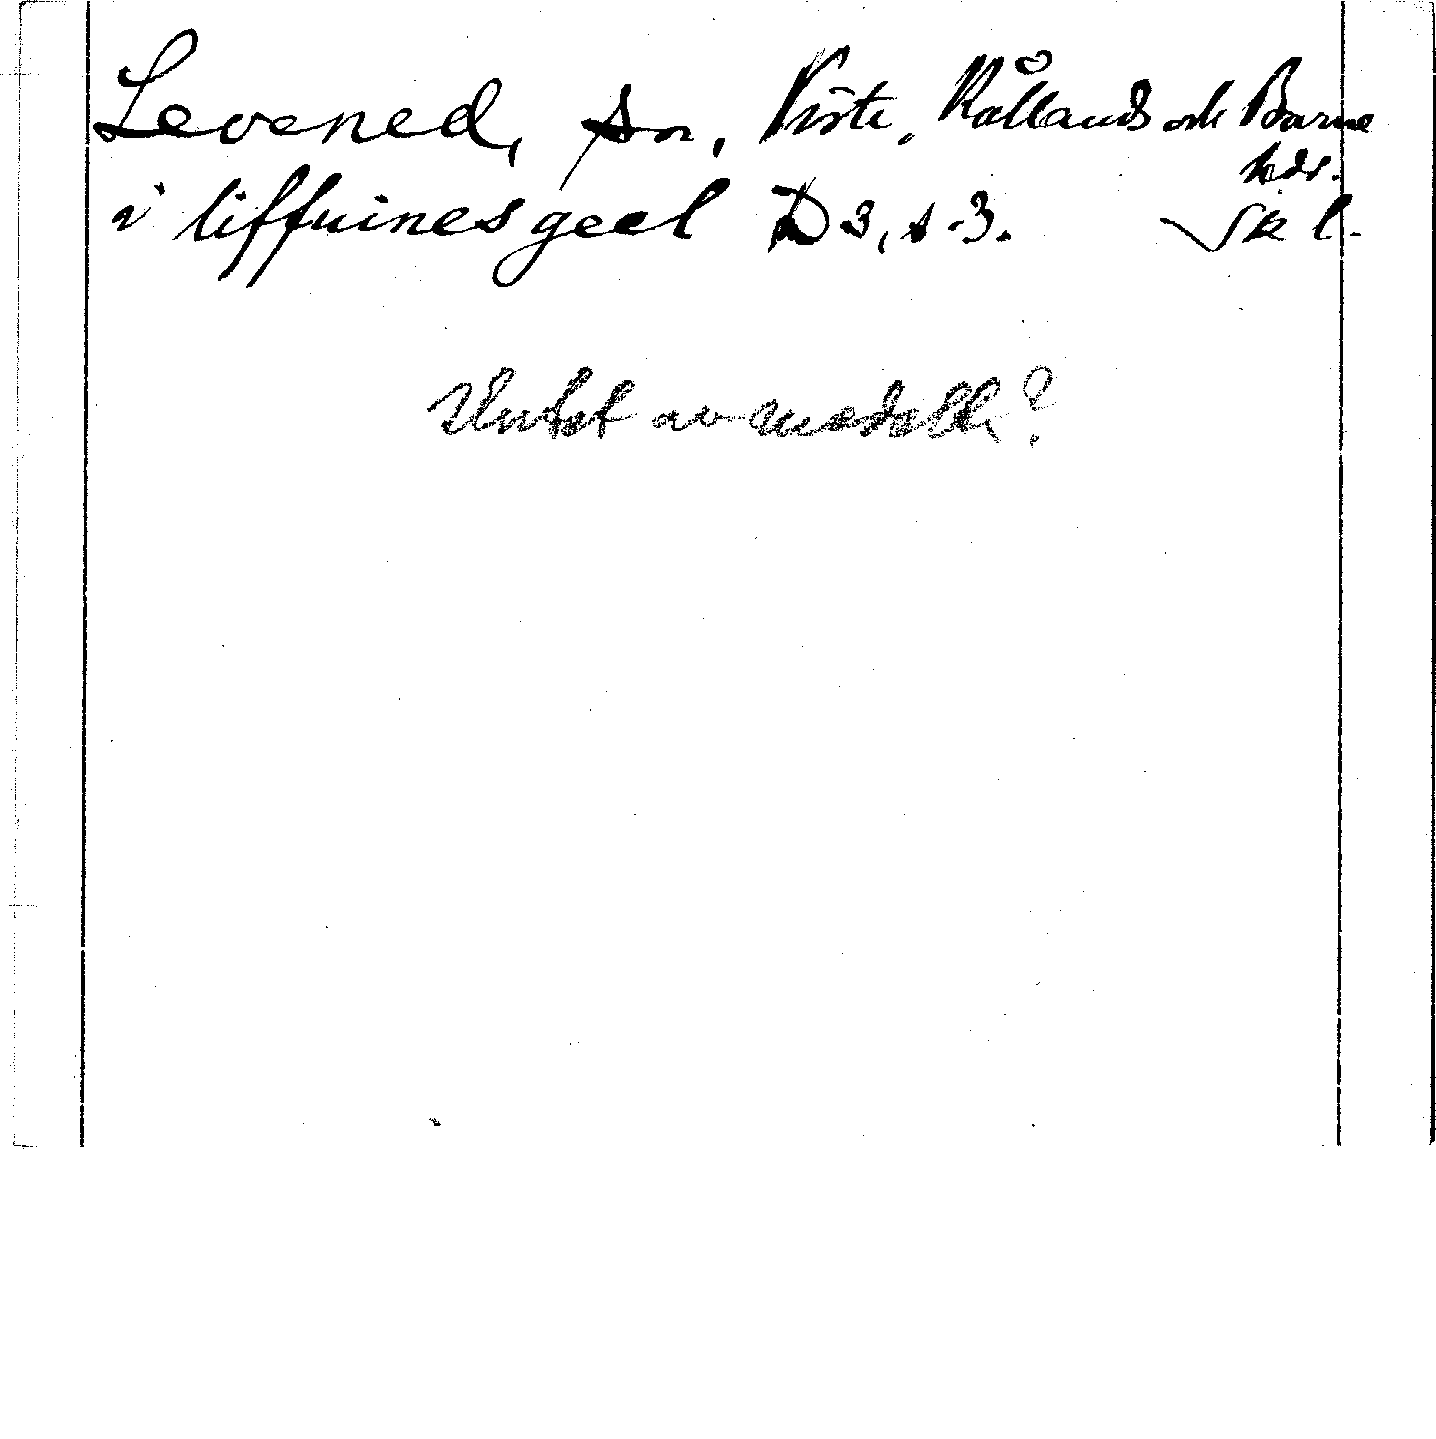 Levened, sn, Viste, Kållands och Barne
hdr.
i liffuinesgeel D 3, s. 3. Sk l.
Intet av medeltk?